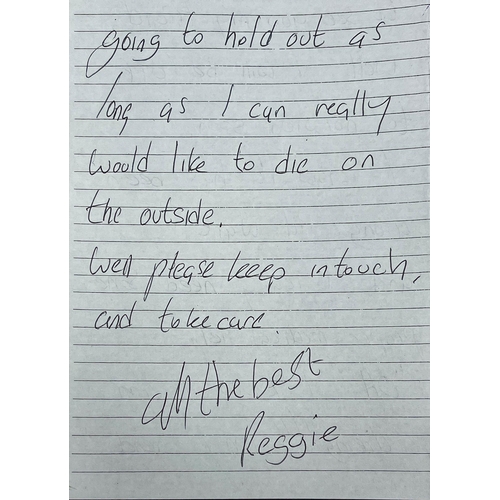 going to hold out as
long as I can really
would like to die on
the outside.
Well please keep in touch,
and take care.
all the best
Reggie